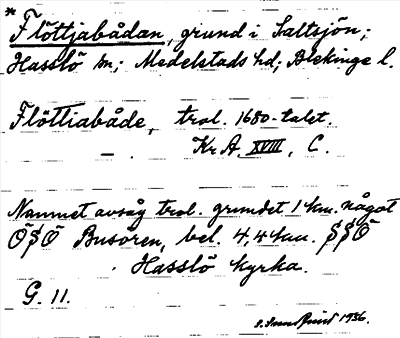 * Flöttjabådan, grund i Saltsjön;
Hasslö sn; Medelstads hd; Blekinge l.
Flöttiabåde, trol. 1680-talet.
Kr.A. XVIII, C.
Namnet avsåg trol. grundet 1 km. något
ÖSÖ Busören, bel. 4,4 km. SSÖ
Hasslö kyrka.
G. 11.
1936.